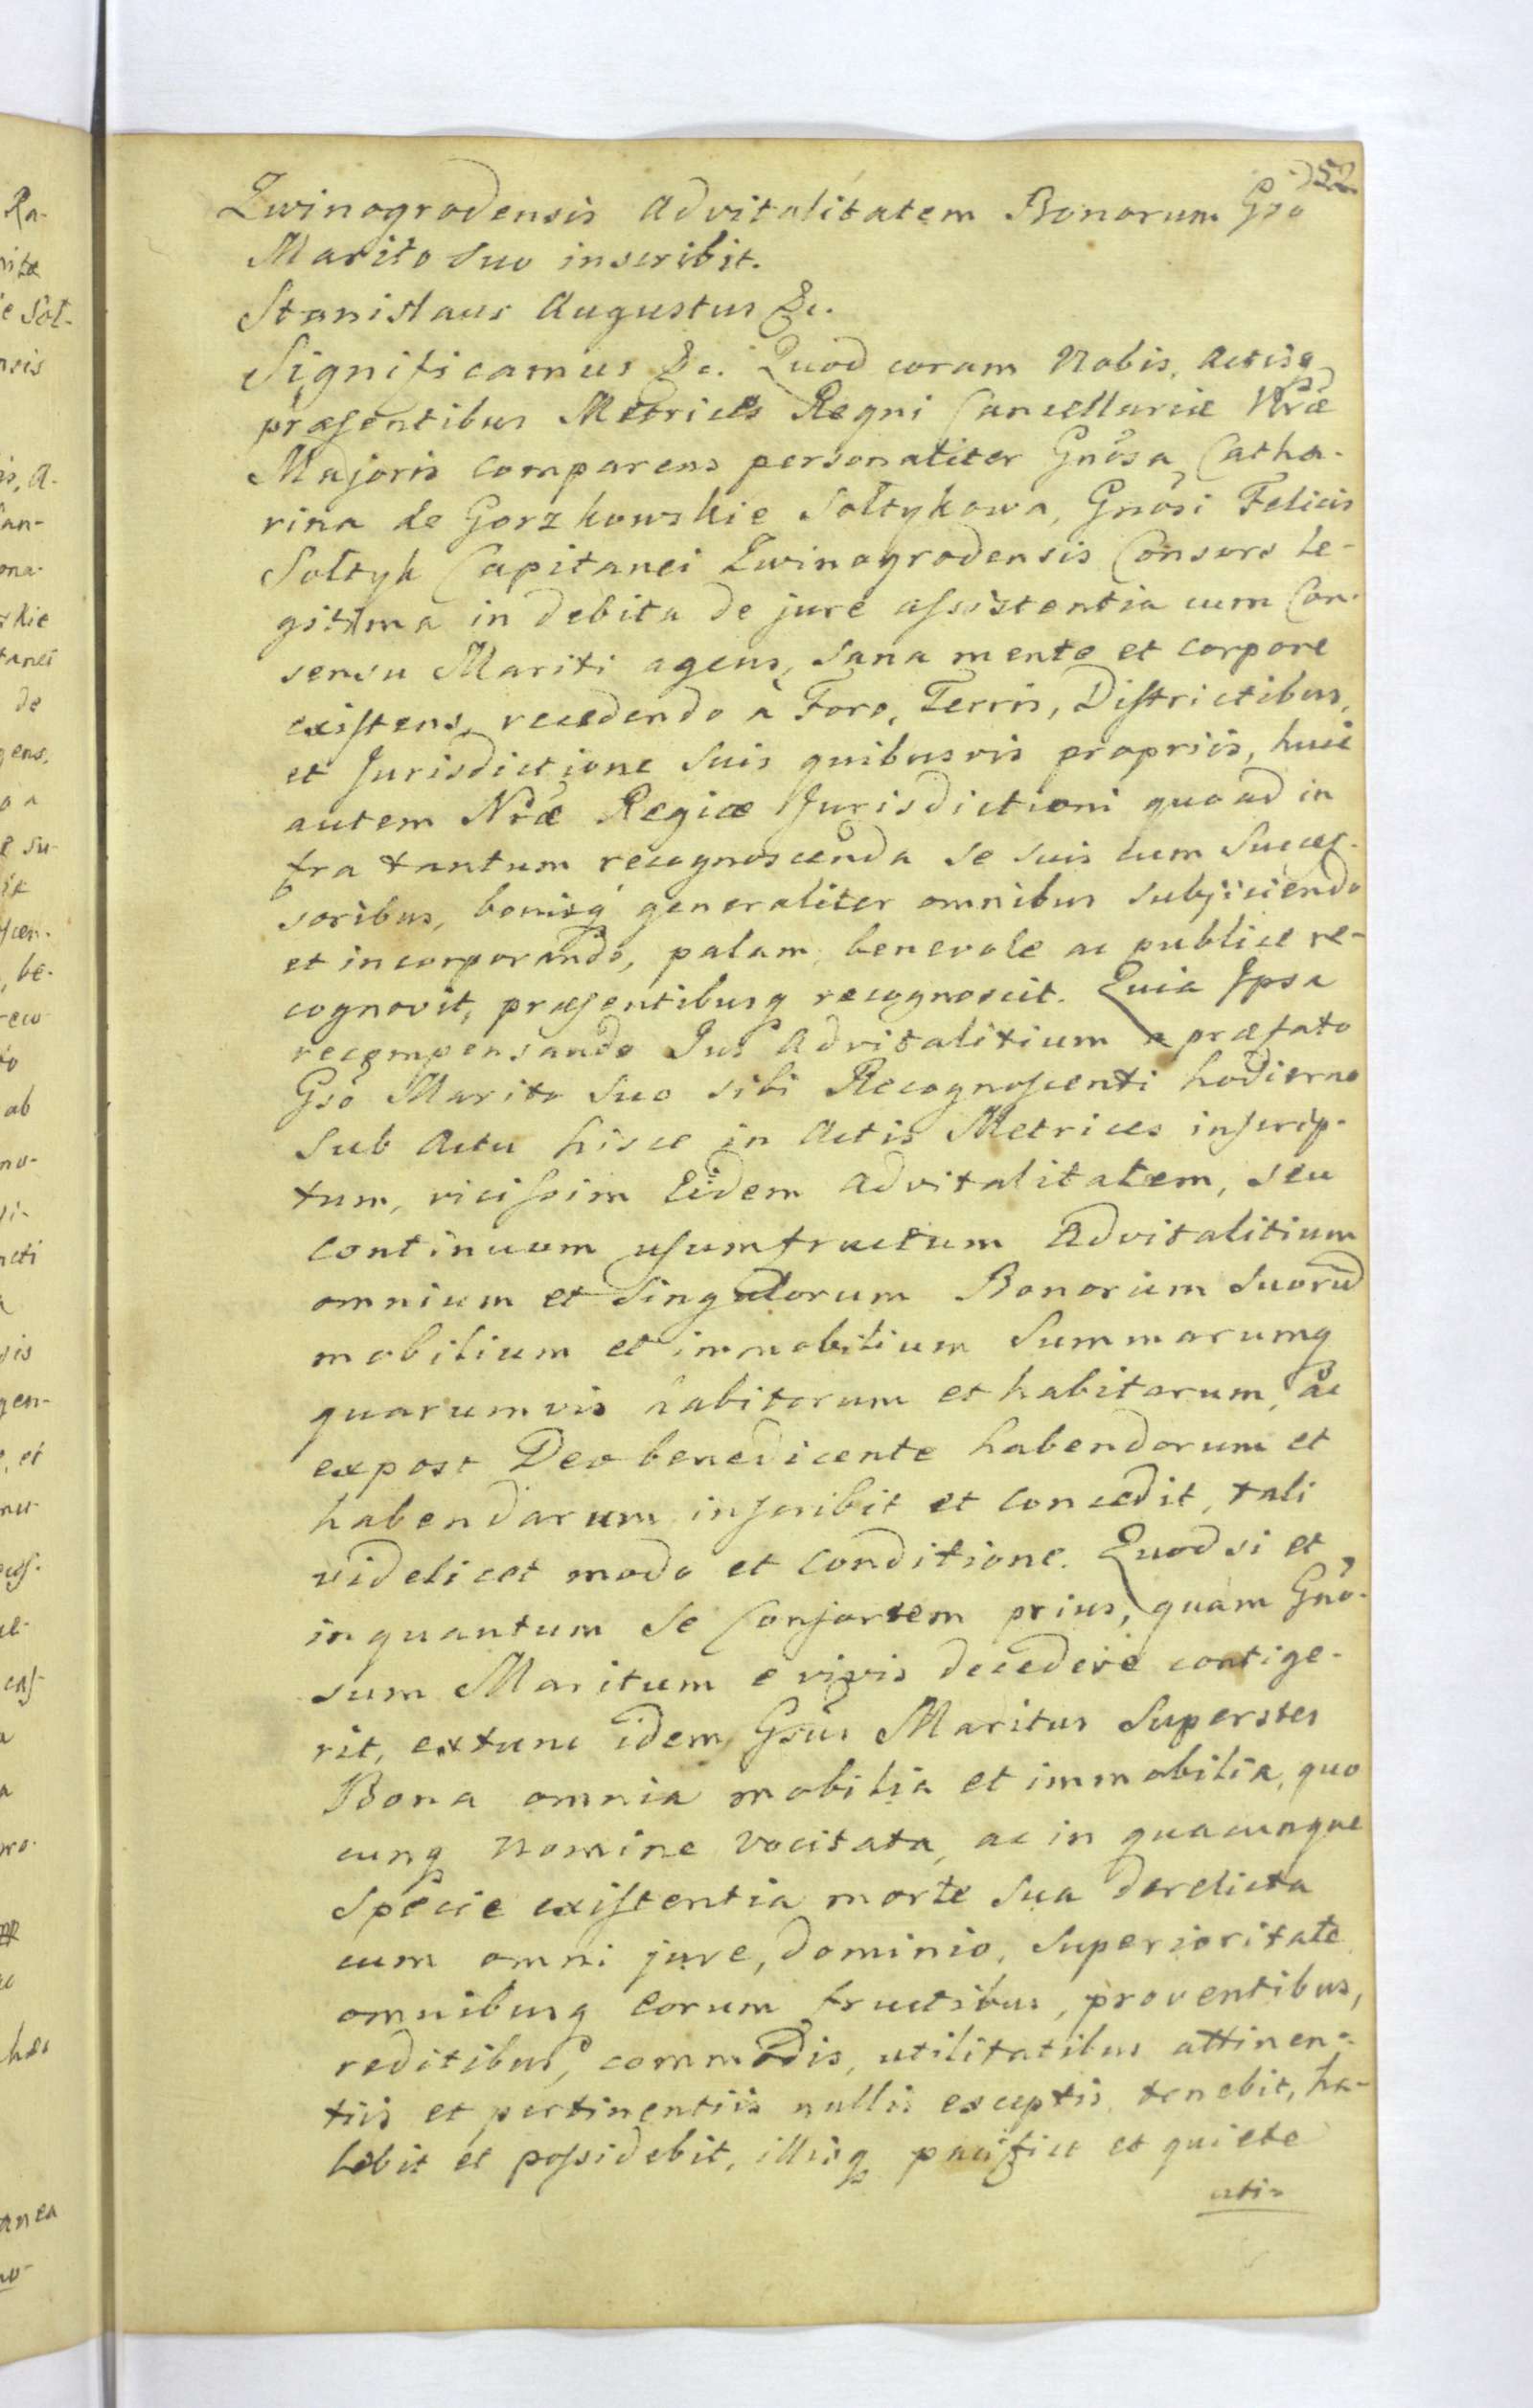 52
Zwinogrodensis Advitalitatem Bonorum Gso
Marito suo inscribit.
Stanislaus Augustus &c.
Significamus &c. Quod coram Nobis, Actisq
præsentibus Metrices Regni Cancellariæ Nræ
Majoris comparens personaliter Gnosa Catha-
rina de Gorzkowskie Sołtykowa, Gnosi Felicis
Sołtyk Capitanei Zwinogrodensis Consors le-
gitima in debita de jure assistentia cum Con-
sensu Mariti agens, sana mente et corpore
existens, recedendo à Foro, Terris, Districtibus,
et Jurisdictione suis quibusvis propriis, huic
autem Nræ Regiæ Jurisdictioni quoad in
fra tantum recognoscenda se suis cum Succes-
soribus, bonisq generaliter omnibus subjiciendo
et incorporando, palam, benevole ac publice re-
cognovit, præsentibusq recognoscit. Quia Ipsa
recompensando Jus Advitalitium a præfato
Gso Marito suo sibi Recognoscenti hodierno
sub Actu hisce in Actis Metrices inscrip-
tum, vicissim Eidem Advitalitatem, seu
continuum usumfructum Advitalitium
omnium et singulorum Bonorum suorũ
mobilium et immobilium Summarumq
quarumvis habitorum et habitarum, ac
expost Deo benedicente habendorum et
habendarum inscribit et concedit, tali
videlicet modo et conditione. Quod si et
inquantum se Consortem prius, quam Gno-
sum Maritum e vivis decedere contige-
rit, extunc idem Gsus Maritus Superstes
Bona omnia mobilia et immobilia, quo
cunq nomine vocitata, ac in quacunque
specie existentia morte sua derelicta
cum omni jure, dominio, superioritate
omnibusq eorum fructibus, proventibus,
reditibus, commodis, utilitatibus attinen-
tiis et pertinentiis nullis exceptis tenebit, ha-
bebit et possidebit, illisq pacifice et quiete
uti-